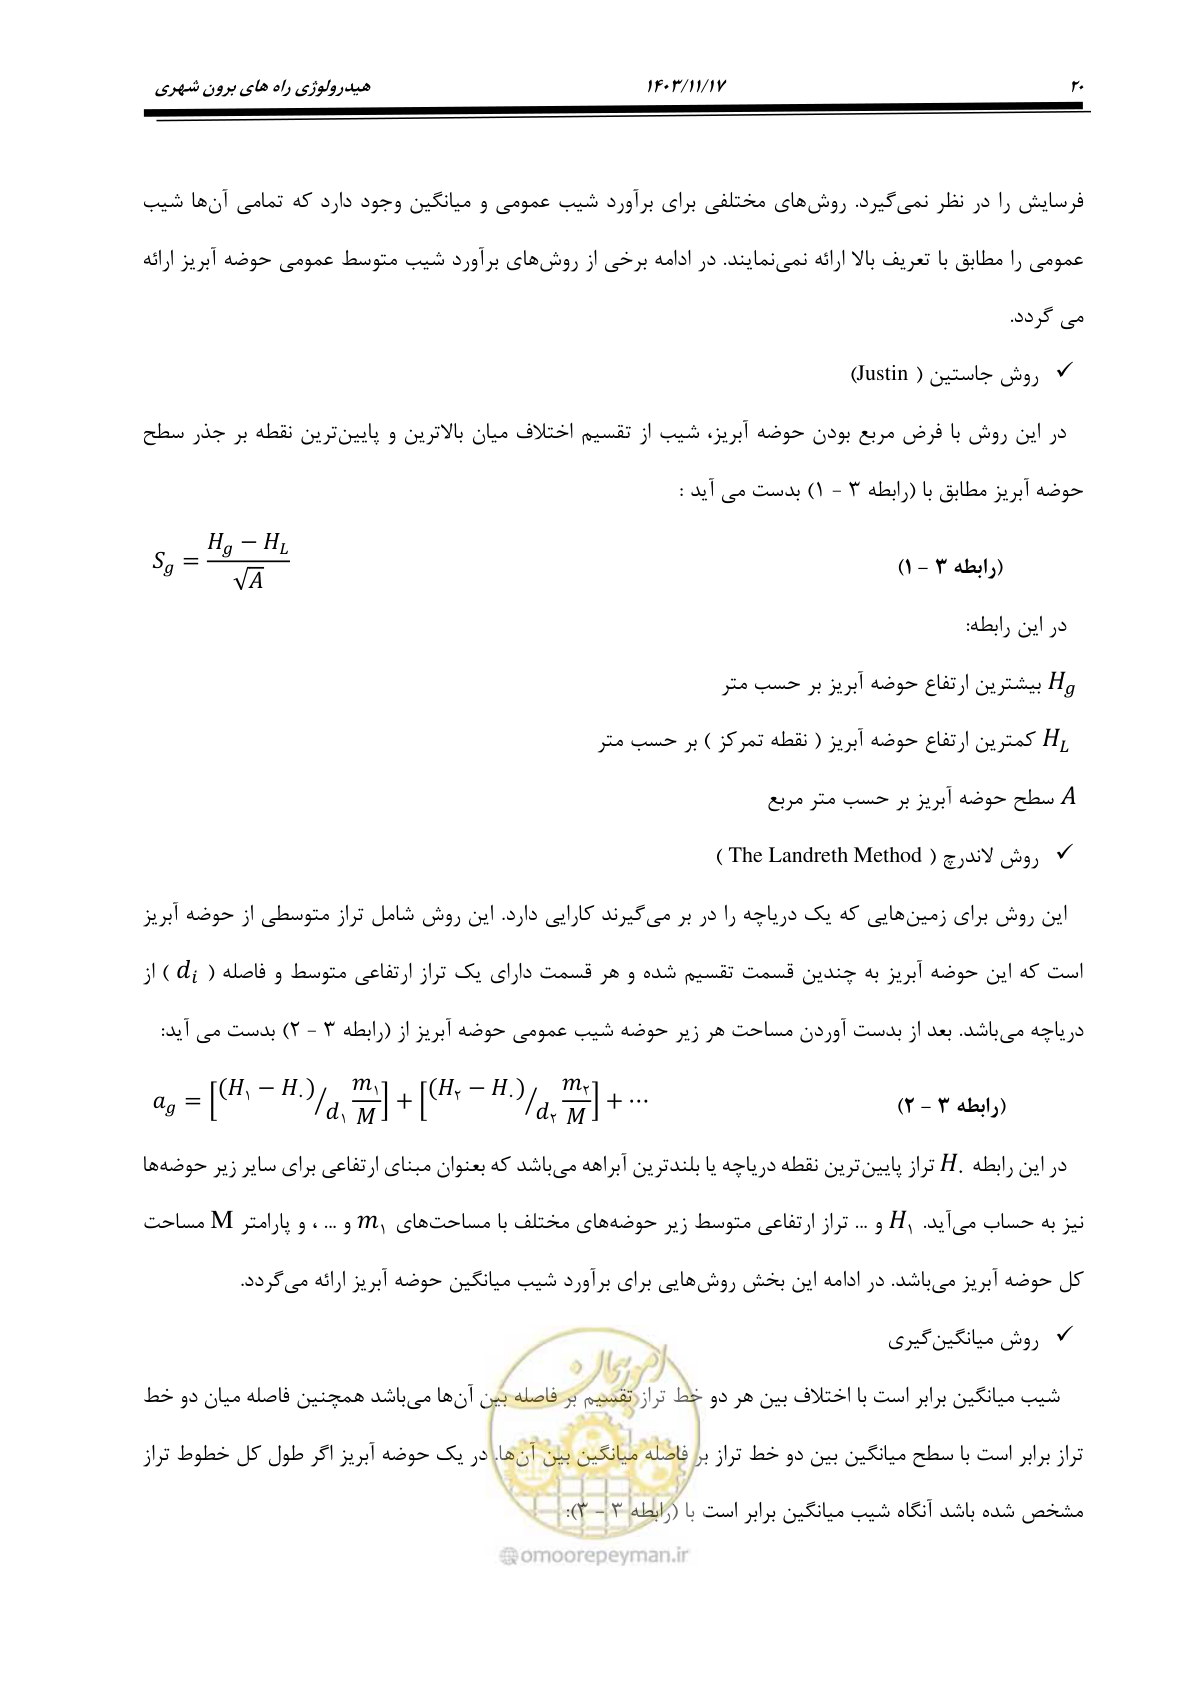 ۲۰ ۱۴۰۳/۱۱/۱۷ هیدرولوژی راه های برون شهری
فرسایش را در نظر نمی‌گیرد. روش‌های مختلفی برای برآورد شیب عمومی و میانگین وجود دارد که تمامی آن‌ها شیب
عمومی را مطابق با تعریف بالا ارائه نمی‌نمایند. در ادامه برخی از روش‌های برآورد شیب متوسط عمومی حوضه آبریز ارائه
می گردد.
✓ روش جاستین ( Justin)
در این روش با فرض مربع بودن حوضه آبریز، شیب از تقسیم اختلاف میان بالاترین و پایین‌ترین نقطه بر جذر سطح
حوضه آبریز مطابق با (رابطه ۳ – ۱) بدست می آید :
(رابطه ۳ – ۱) S_g = (H_g − H_L) / √A
در این رابطه:
H_g بیشترین ارتفاع حوضه آبریز بر حسب متر
H_L کمترین ارتفاع حوضه آبریز ( نقطه تمرکز ) بر حسب متر
A سطح حوضه آبریز بر حسب متر مربع
✓ روش لاندرچ ( The Landreth Method )
این روش برای زمین‌هایی که یک دریاچه را در بر می‌گیرند کارایی دارد. این روش شامل تراز متوسطی از حوضه آبریز
است که این حوضه آبریز به چندین قسمت تقسیم شده و هر قسمت دارای یک تراز ارتفاعی متوسط و فاصله ( d_i ) از
دریاچه می‌باشد. بعد از بدست آوردن مساحت هر زیر حوضه شیب عمومی حوضه آبریز از (رابطه ۳ – ۲) بدست می آید:
(رابطه ۳ – ۲) a_g = [(H_۱ − H_۰)/d_۱ m_۱/M] + [(H_۲ − H_۰)/d_۲ m_۲/M] + ⋯
در این رابطه H_۰ تراز پایین‌ترین نقطه دریاچه یا بلندترین آبراهه می‌باشد که بعنوان مبنای ارتفاعی برای سایر زیر حوضه‌ها
نیز به حساب می‌آید. H_۱ و ... تراز ارتفاعی متوسط زیر حوضه‌های مختلف با مساحت‌های m_۱ و ... ، و پارامتر M مساحت
کل حوضه آبریز می‌باشد. در ادامه این بخش روش‌هایی برای برآورد شیب میانگین حوضه آبریز ارائه می‌گردد.
✓ روش میانگین‌گیری
شیب میانگین برابر است با اختلاف بین هر دو خط تراز تقسیم بر فاصله بین آن‌ها می‌باشد همچنین فاصله میان دو خط
تراز برابر است با سطح میانگین بین دو خط تراز بر فاصله میانگین بین آن‌ها. در یک حوضه آبریز اگر طول کل خطوط تراز
مشخص شده باشد آنگاه شیب میانگین برابر است با (رابطه ۳ – ۳):
امور پیمان
@omoorepeyman.ir